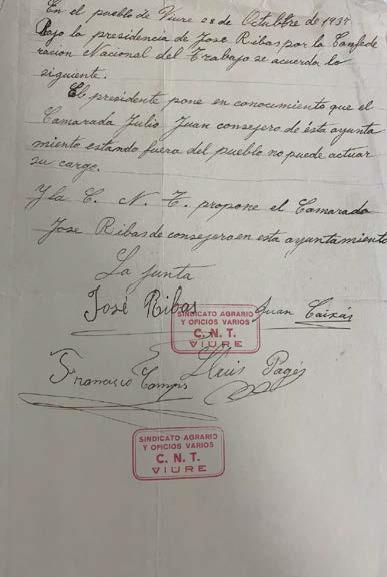 En el pueblo de Viure 28 de Octubre de 1937
Bajo la presidencia de Jose Ribas por la Confede
racion Nacional del Trabajo se acuerda lo
siguiente.
El presidente pone en conocimiento que el
Camarada Julio Juan consejero de ésta ayunta
miento estando fuera del pueblo no puede actuar
su cargo.
Y la C. N. T. propone el Camarada
Jose Ribas de consejero en esta ayuntamiento
La junta
José Ribas Juan Caixás
SINDICATO AGRARIO
Y OFICIOS VARIOS
C. N. T.
VIURE
Francisco Camps Lluis Pagés
SINDICATO AGRARIO
Y OFICIOS VARIOS
C. N. T.
VIURE